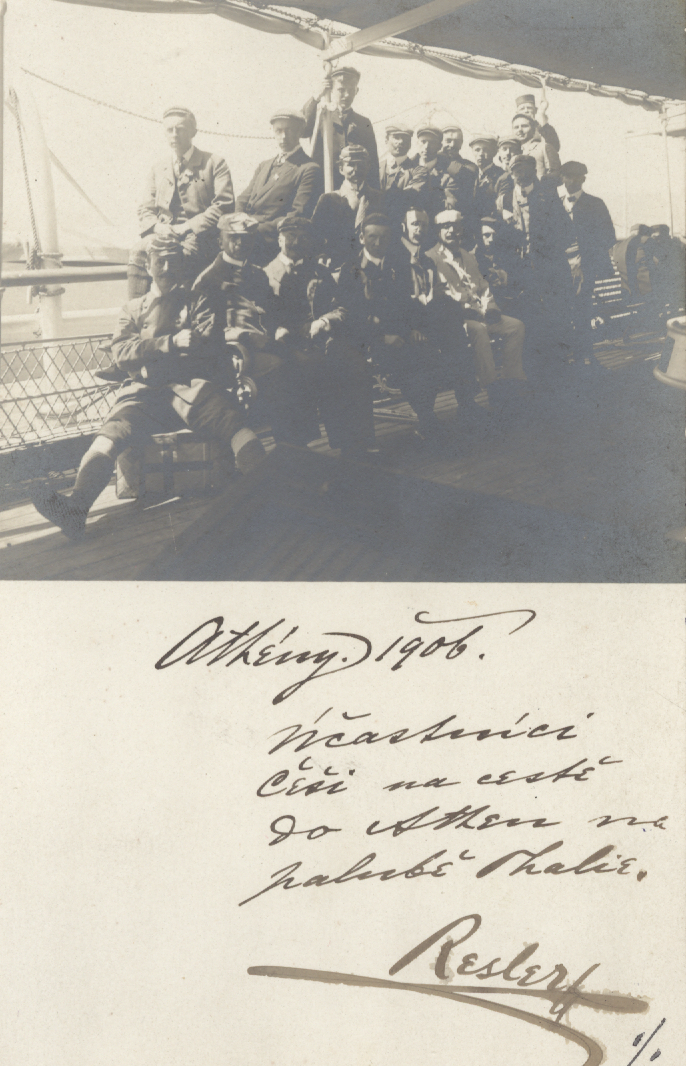 Athény. 1906.
Účastníci
Češi na cestě
do Athen na
palubě Thalie.
Resler